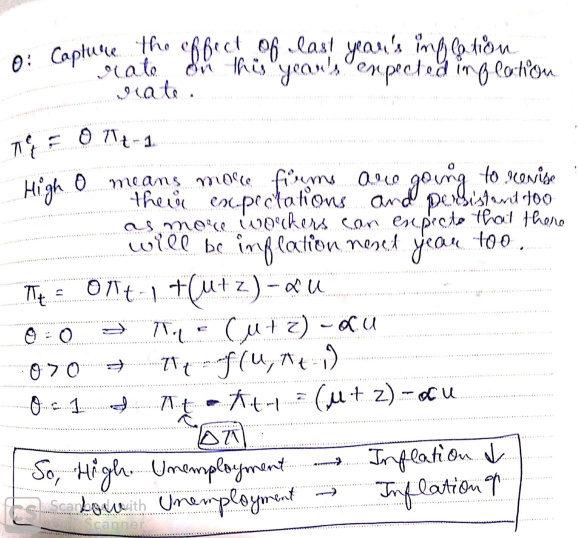 θ: Capture the effect of last year's inflation
rate on this year's expected inflation
rate.
π^e_t = θ π_{t-1}
High θ means more firms are going to revise
their expectations and persistant too
as more workers can expects that there
will be inflation next year too.
π_t = θπ_{t-1} + (μ+z) - αu
θ=0 ⇒ π_t = (μ+z) - αu
θ>0 ⇒ π_t = f(u, π_{t-1})
θ=1 ⇒ π_t - π_{t-1} = (μ+z) - αu
Δπ
So, High Unemployment → Inflation ↓
Low Unemployment → Inflation ↑
CS Scanned with
Scanner